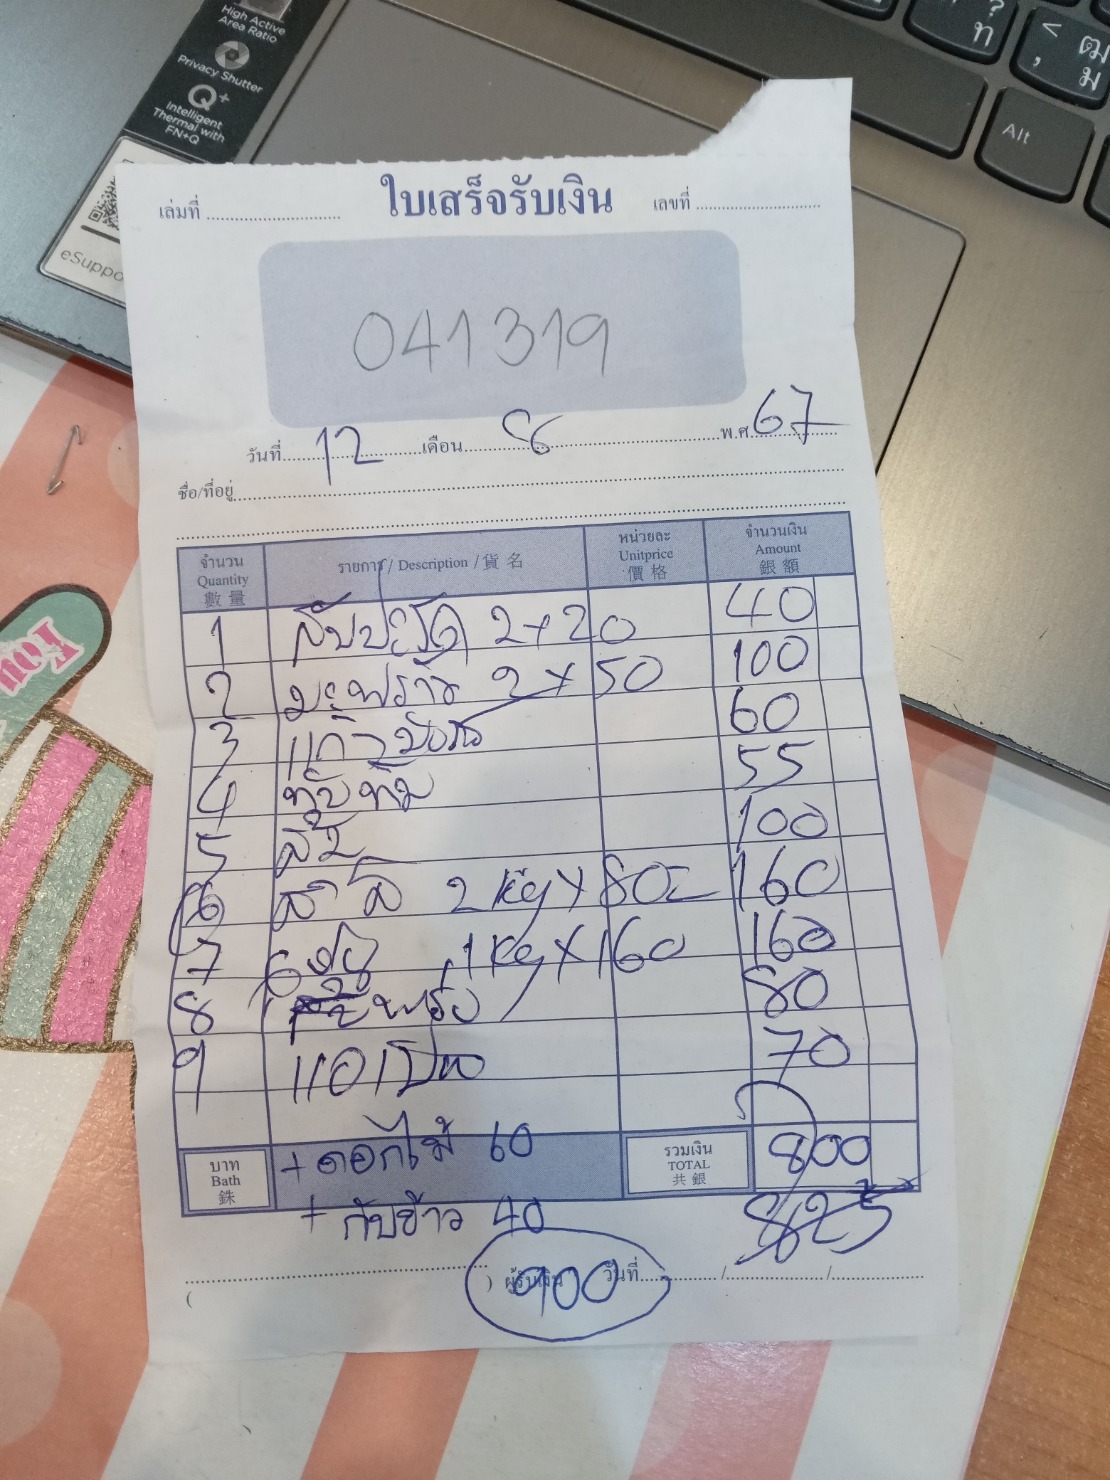 High Active
Area Ratio
Privacy Shutter
Q+
Intelligent
Thermal with
FN+Q
eSuppo
? ท
< , ฒ ม
Alt
เล่มที่ ใบเสร็จรับเงิน เลขที่
041319
วันที่ 12 เดือน 8 พ.ศ. 67
ชื่อ/ที่อยู่
จำนวน Quantity 數量 รายการ / Description / 貨名 หน่วยละ Unitprice 價格 จำนวนเงิน Amount 銀額
1 สับปะรด 2x20 40
2 มะพร้าว 2x50 100
3 แก้วมังกร 60
4 ทับทิม 55
5 ส้ม 100
6 สาลี่ 2 kg x 80 = 160
7 องุ่น 1 kg x 160 160
8 80
9 แอปเปิล 70
บาท Bath 銖 + ดอกไม้ 60 รวมเงิน TOTAL 共銀 800
+ กับข้าว 40 825
900
( ) ผู้รับเงิน วันที่ / /